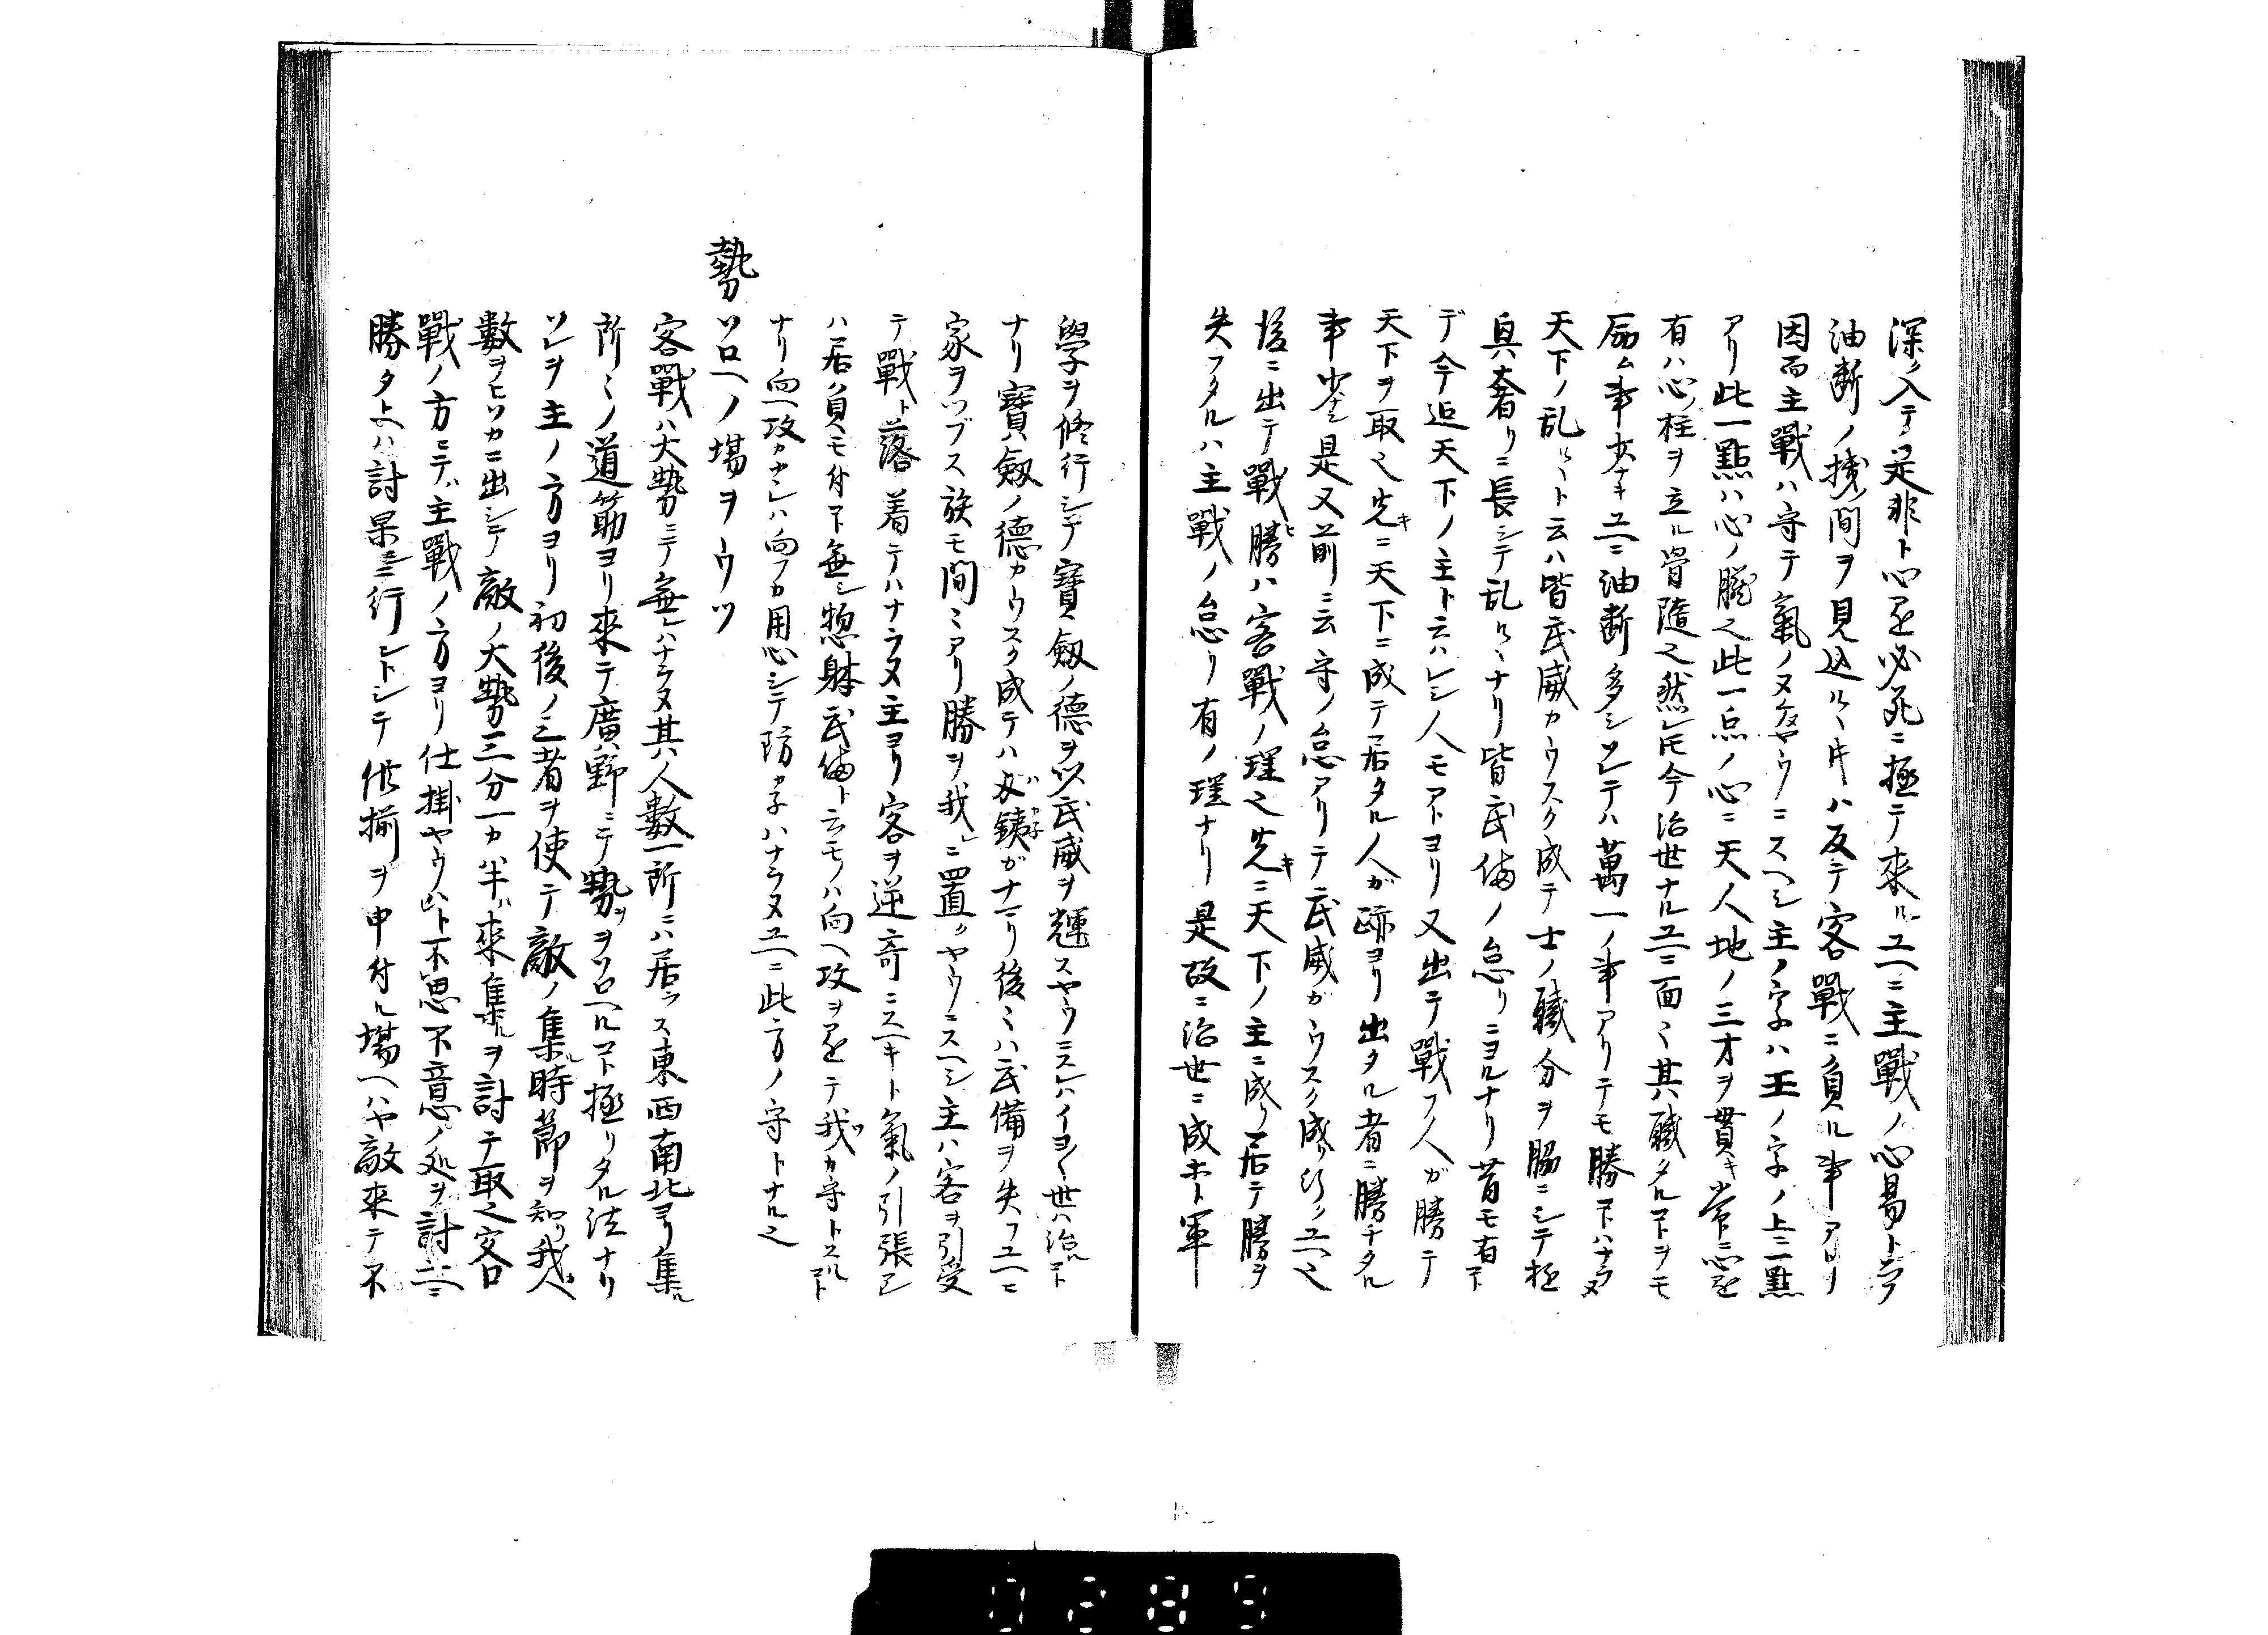 深ク入テノ是非ト心ヲ必死ニ極テ来ルユヘニ主戰ノ心易ト云フ
油断ノ捜間ヲ見込ルヽ片ハ反テ客戰ニ負ル事アリ
因而主戰ハ守テ氣ノヌケヌヤウニスヘシ主ノ字ハ王ノ字ノ上ニ一點
アリ此一點ハ心ノ臓也此一点ノ心ニ天人地ノ三才ヲ貫キ常ニ心ヲ
有ハ心ノ柱ヲ立ル骨隨也然レ𪜈今ノ治世ナルユヘニ面ミ其職タルヿヲモ
励ム事少ナキユヘニ油断多シソレテハ萬一ノ事アリテモ勝ヿハナラヌ
天下ノ乱ルヽト云ハ皆武威カウスク成テ士ノ職分ヲ脇ニシテ極
奥奢リニ長シテ乱ルヽナリ皆武備ノ怠リニヨルナリ昔モ有ヿ
デ今迠天下ノ主ト云ハレシ人モアトヨリ又出テ戰フ人ガ勝テ
天下ヲ取也先キニ天下ニ成テ居タル人ガ跡ヨリ出タル者ニ勝チタル
事少ナシ是又前ニ云守ノ怠アリテ武威ガウスク成リ行クユヘ也
後ニ出テ戰勝ヒハ客戰ノ理也先キニ天下ノ主ニ成リ居テ勝ヲ
失フタルハ主戰ノ怠リ有ノ理ナリ是故ニ治世ニ成ホト軍
學ヲ修行シテ寶劔ノ德ヲ以武威ヲ輝スヤウニスレハイヨ〱世ハ治ルヿ
ナリ寶劔ノ德カウスク成テハ必銕ガナマリ後ミハ武備ヲ失フユヘニ
家ヲツブス族モ間ミアリ勝ヲ我レニ置クヤウニスヘシ主ハ客ヲ引受
テ戰ト落着テハナラヌ主ヨリ客ヲ逆寄ニスヘキト氣ノ引張ヲ
ハ居ノ負モ付ヿ無シ惣躰武備ト云モノハ向ヘ攻ヲ是テ我カ守トスルヿ
ナリ向ヘ攻カナシハ向フカ用心シテ防カネハナラヌユヘニ此方ノ守トナル也
勢ソロヘノ場ヲウツ
客戰ハ大勢ニテ無レハナラヌ其ノ人數一所ニハ居ラス東西南北ヨリ集ル
所ミノ道筋ヨリ来テ廣野ニテ勢ヲソロヘルヿ極リタル法ナリ
ソレヲ主ノ方ヨリ初後ノ三者ヲ使テ敵ノ集ル時節ヲ知リ我
數ヲヒソカニ出シテ敵ノ大勢三分一カ半ハ来集ルヲ討テ取也客ロ
戰ノ方ニテハ主戰ノ方ヨリ仕掛ヤウハト不思不意ノ処ヲ討ユヘニ
勝タ上ハ討果シニ行レトシテ供揃ヲ申付ル場ヘハヤ敵来テ不